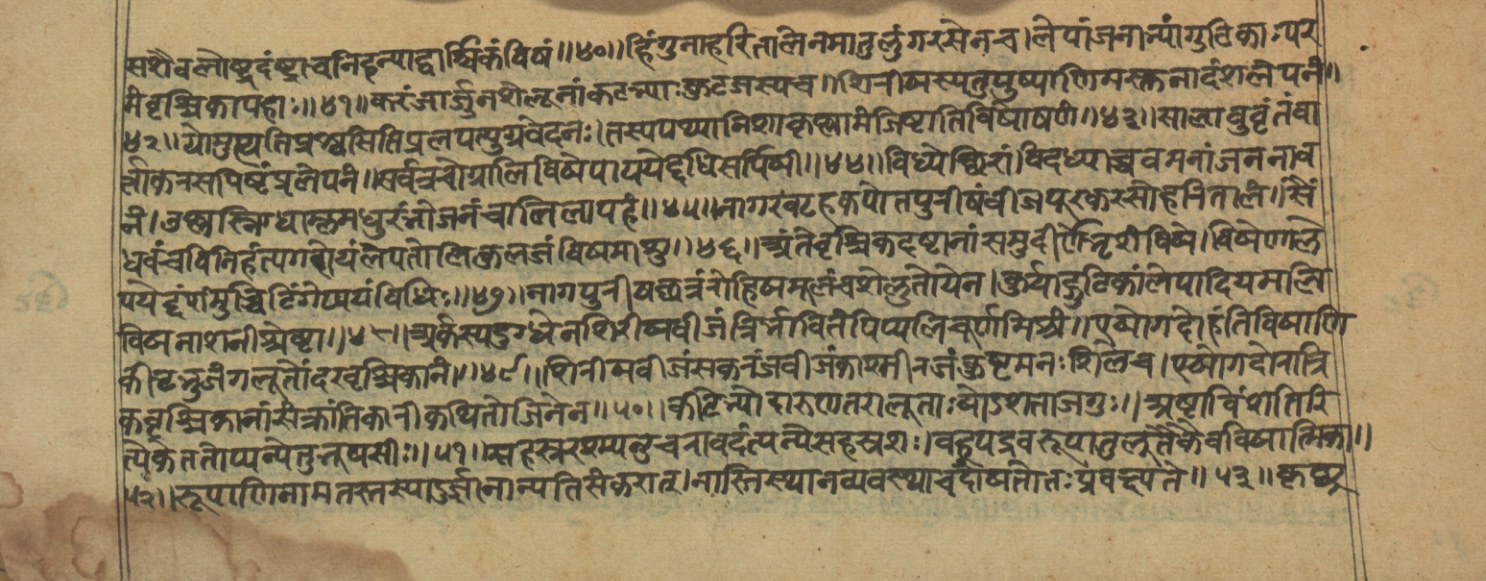 सशैवलौष्ट्रदंष्ट्राचनिहन्याद्वार्श्चिकंविषं॥४०॥हिंगुनाहरितालेनमातुलुंगरसेनच।लेपांजनाभ्यांगुटिकाःपर
मंवृश्चिकापहाः॥४१॥करंजार्जुनशेलूनांकटभ्याःकुटजस्यच॥शिरीषस्यतुपुष्पाणिमस्तुनादंशलेपनं॥
४२॥योमुह्यतिप्रश्वसितिप्रलपत्युग्रवेदनः।तस्यपथ्यानिशाकृष्णामंजिष्टातिविषोषणं॥४३॥सालाबुवृंतंवा
र्त्ताकरसपिष्टंप्रलेपनं॥सर्वत्रचोग्रालिविषेपाययेद्दधिसर्पिषी॥४४॥विध्येच्छिरांविदध्याच्चवमनांजननाव
नं।उष्णस्निग्धाम्लमधुरंभोजनंचानिलापहं॥४५॥नागरंगृहकपोतपुरीषंबीजपूरकरसोहरितालं॥सैं
धवंचविनिहंत्यगदोयंलेपतोलिकुलजंविषमाशु॥४६॥अंतेवृश्चिकदष्टानांसमुदीर्णेभृशंविषे।विषेणाले
पयेद्दंशमुच्चिटिंगेप्ययंविधिः॥४७॥नागपुरीषच्छत्रंरोहिषमूलंचशेलुतोयेन।कुर्याद्गुटिकांलेपादियमलि
विषनाशनीश्रेष्टा॥४८॥अर्कस्यदुग्धेनशिरीषबीजंत्रिर्भावितंपिप्पलिचूर्णमिश्रं॥एषोगदोहंतिविषाणि
कीटभुजंगलूतोंदरवृश्चिकानां॥४९॥शिरीषबीजंसकरंजबीजंकाश्मीरजंकुष्टमनःशिलेच।एषोगदोरात्रि
कवृश्चिकानांसंक्रांतिकारीकथितोजिनेन॥५०॥कीटेभ्योदारुणतरालूताःषोडशताजगुः॥अष्टाविंशतिरि
त्येकेततोप्यन्येतुभूयसीः॥५१॥सहस्ररश्म्यनुचरावदंत्यन्येसहस्रशः।बहूपद्रवरूपातुलूतैकैवविषात्मिका॥
५२॥रूपाणिनामतस्तस्यादुर्ज्ञेयान्यतिसंकरात्।नास्तिस्थानव्यवस्थाचदोषतोतःप्रवक्ष्यते॥५३॥कृच्छ्र